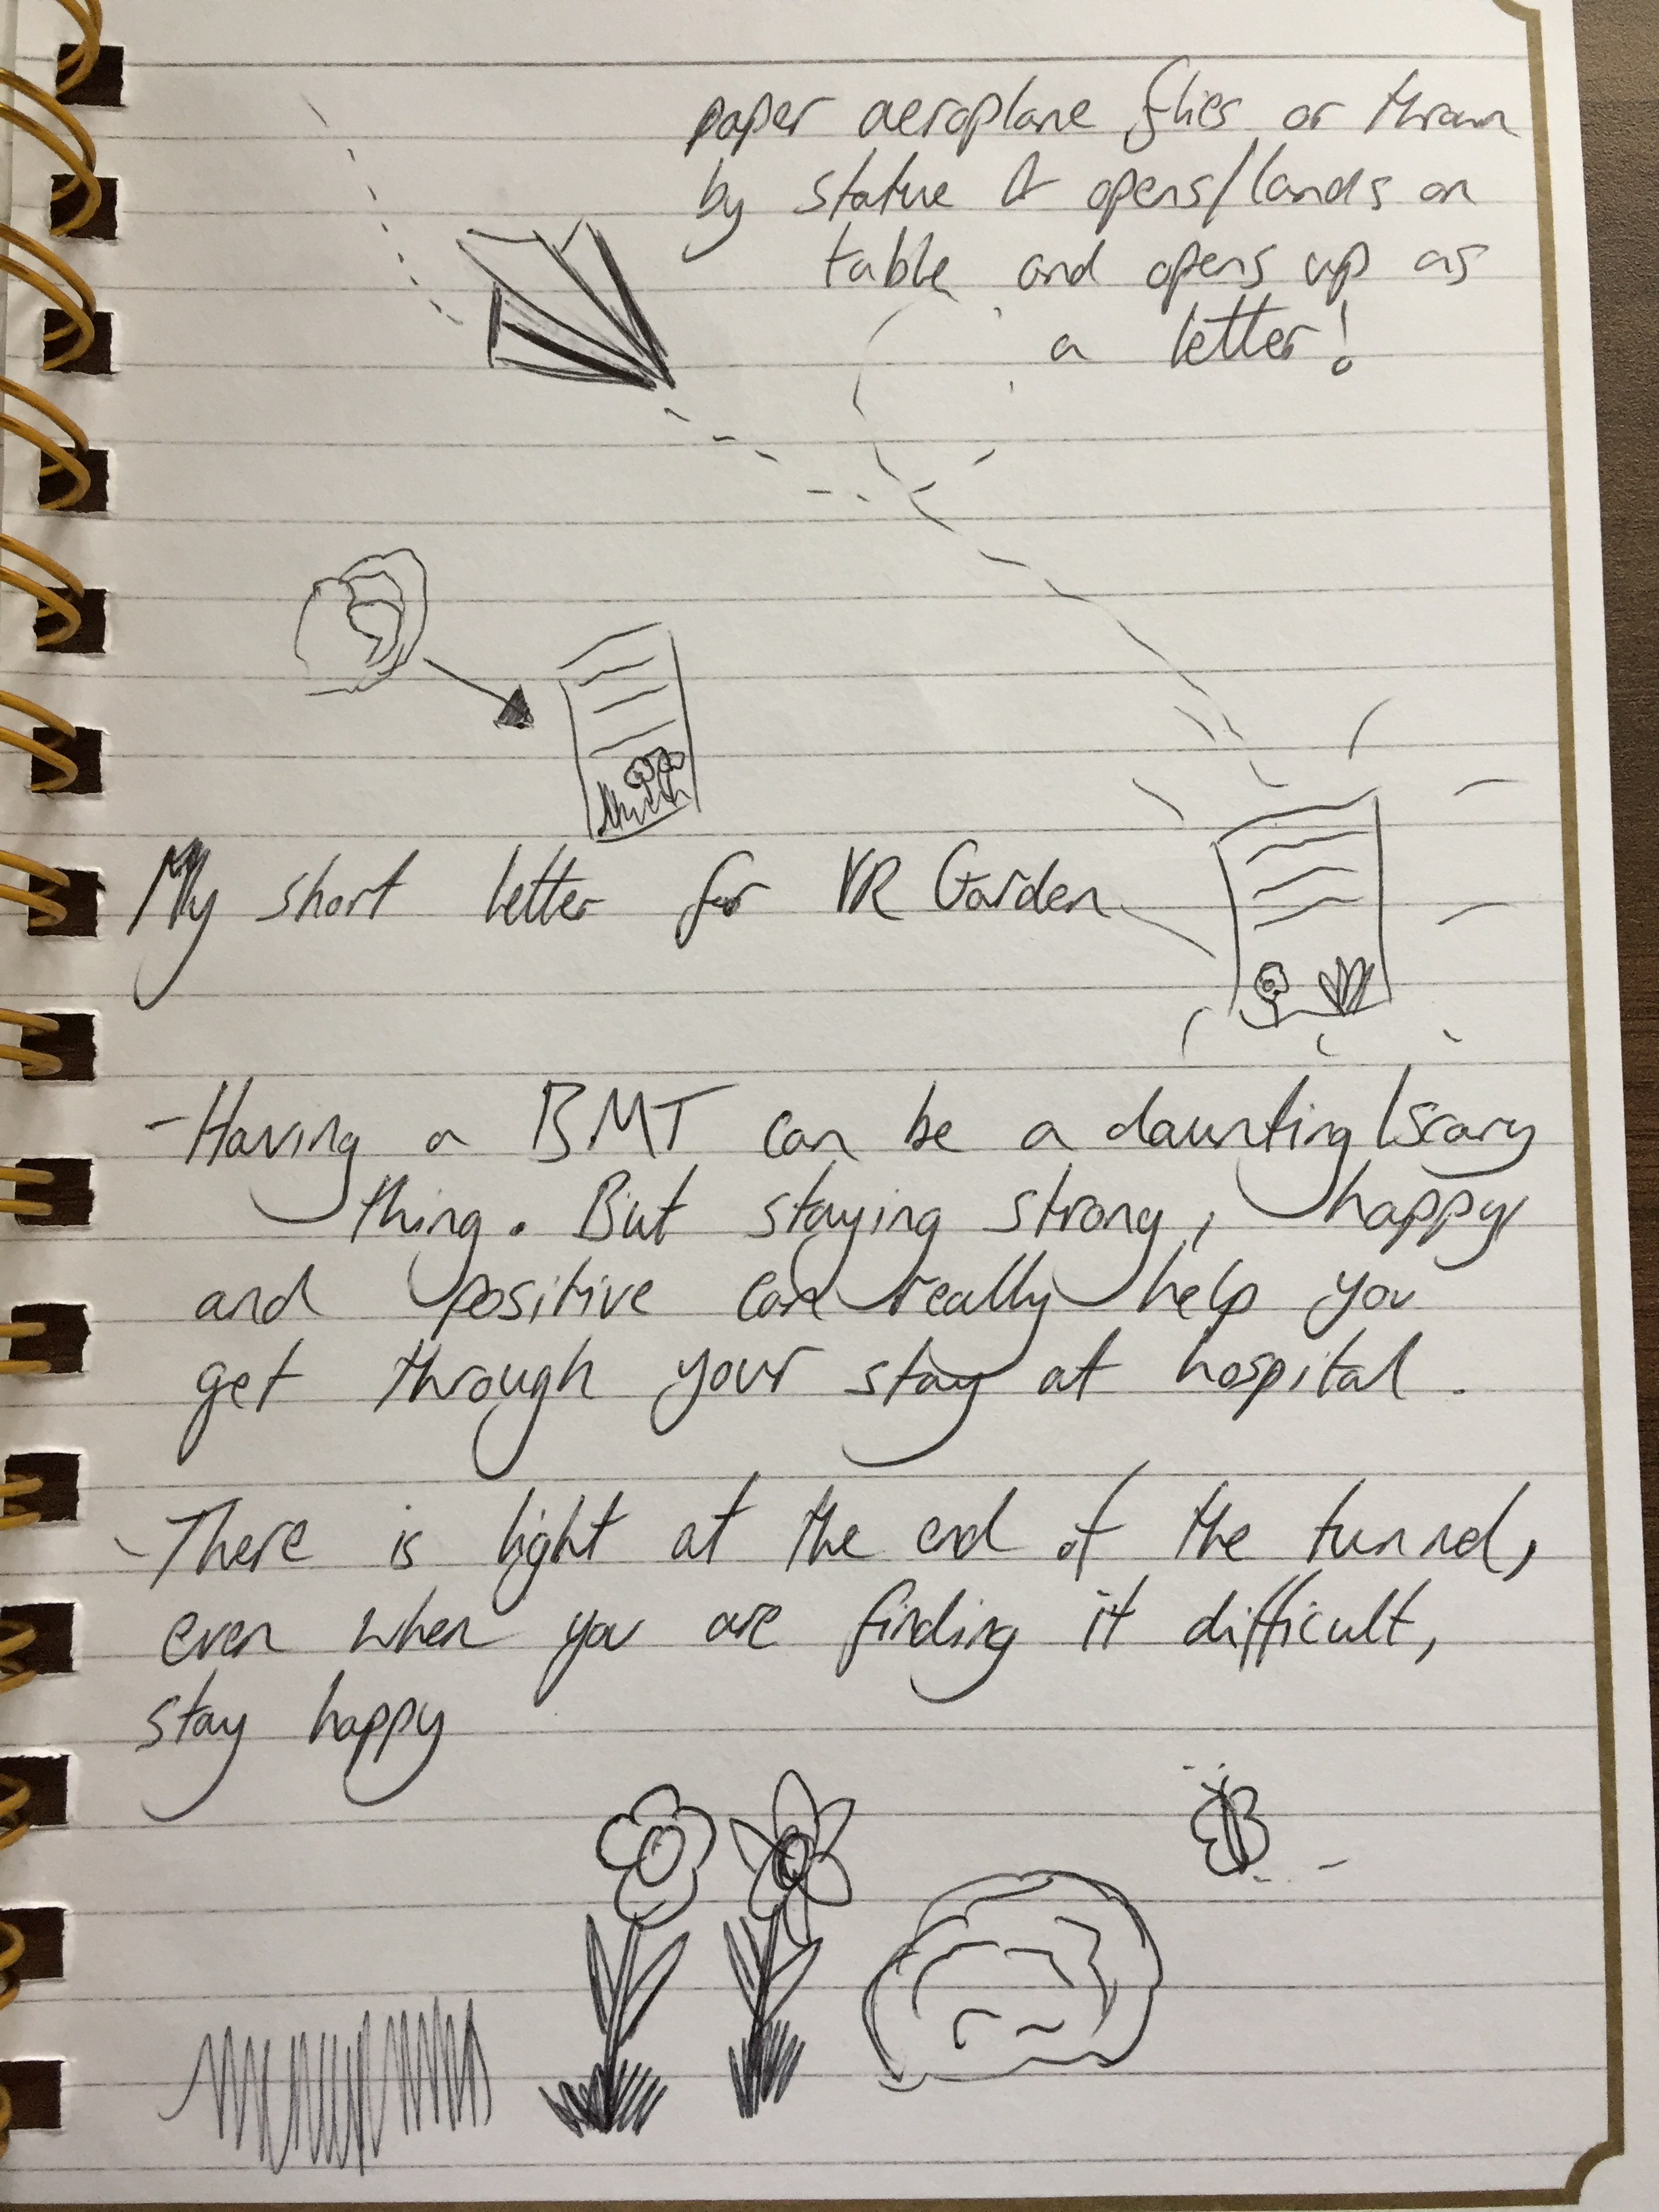 paper aeroplane flies or thrown
by statue & opens/lands on
table and opens up as
a letter!
My short letter for VR Garden
- Having a BMT can be a daunting/scary
thing. But staying strong, happy
and positive can really help you
get through your stay at hospital.
- There is light at the end of the tunnel,
even when you are finding it difficult,
stay happy